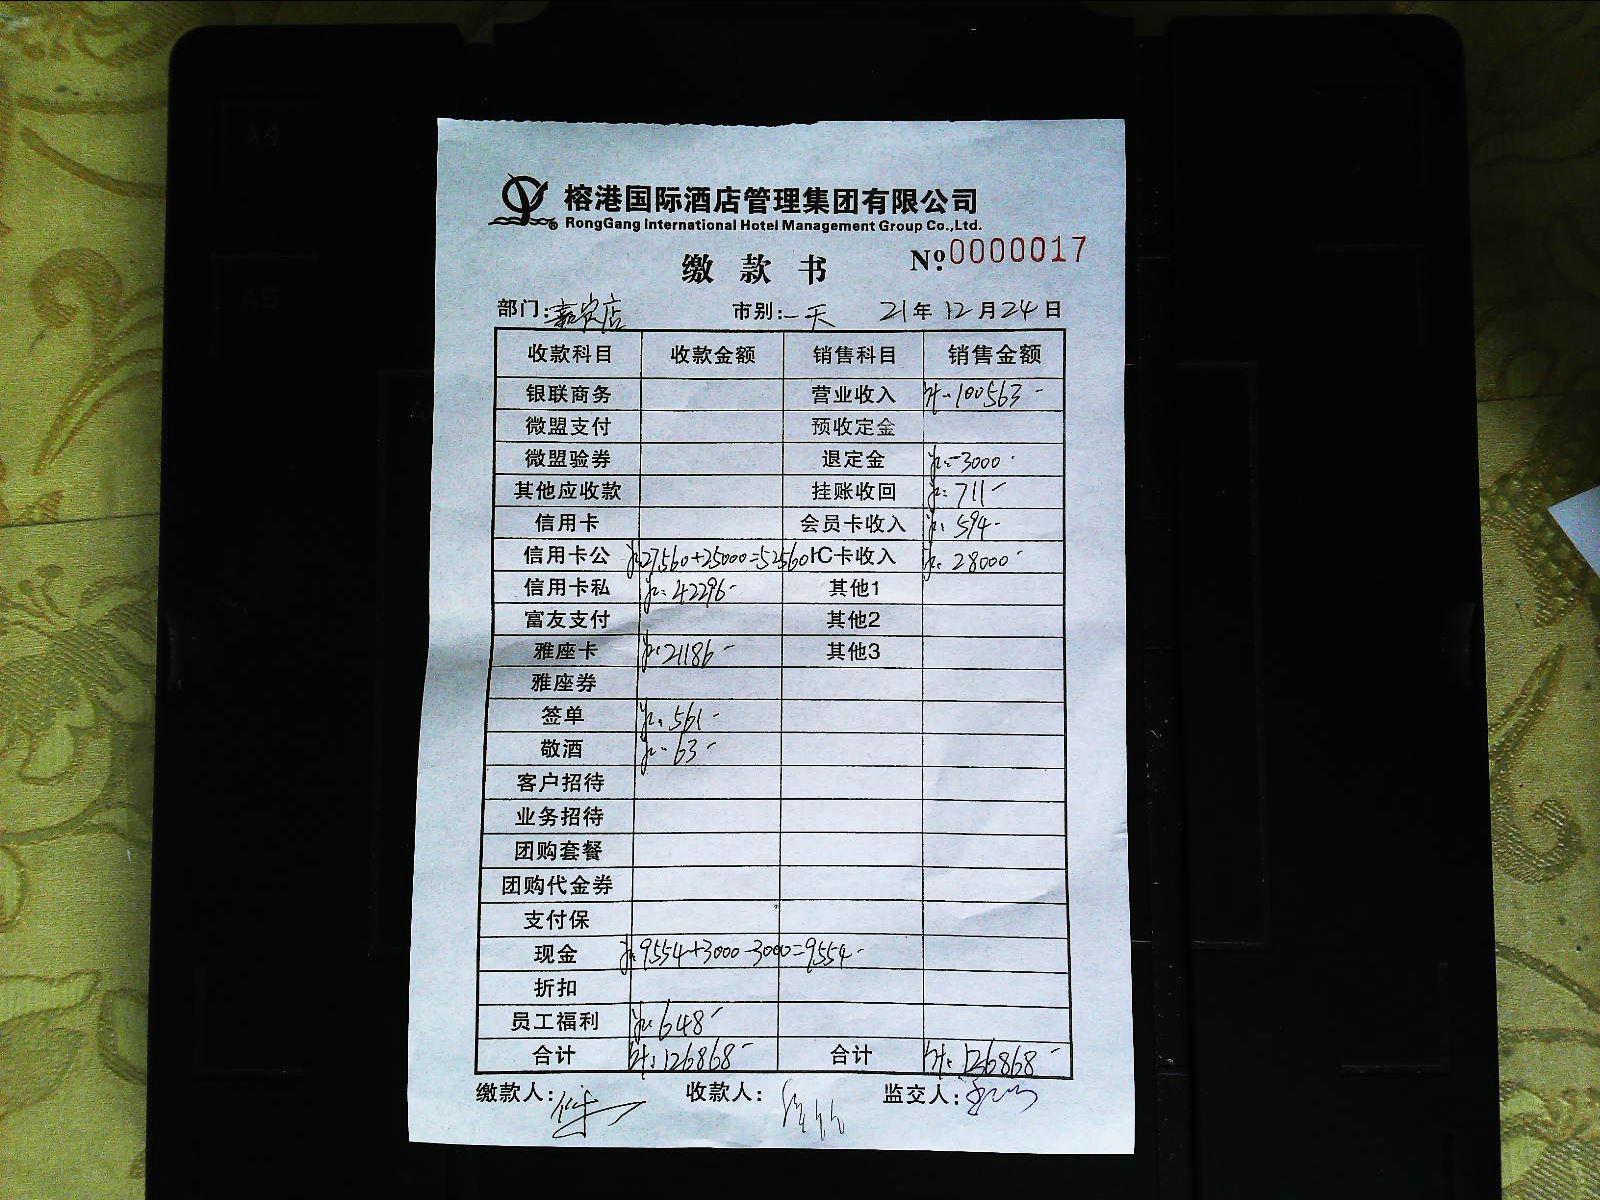 榕港国际酒店管理集团有限公司
RongGang International Hotel Management Group Co.,Ltd.
缴款书 Nº:0000017
部门:嘉宾店 市别:一天 21年12月24日
收款科目 收款金额 销售科目 销售金额
银联商务 营业收入 计:100563-
微盟支付 预收定金
微盟验券 退定金 -3000-
其他应收款 挂账收回 711-
信用卡 会员卡收入 594-
信用卡公 27560+25000=52560 IC卡收入 28000-
信用卡私 42296- 其他1
富友支付 其他2
雅座卡 21186- 其他3
雅座券
签单 561-
敬酒 63-
客户招待
业务招待
团购套餐
团购代金券
支付保
现金 9554+3000-3000=9554-
折扣
员工福利 648-
合计 计:126868- 合计 计:126868-
缴款人: 收款人: 监交人: